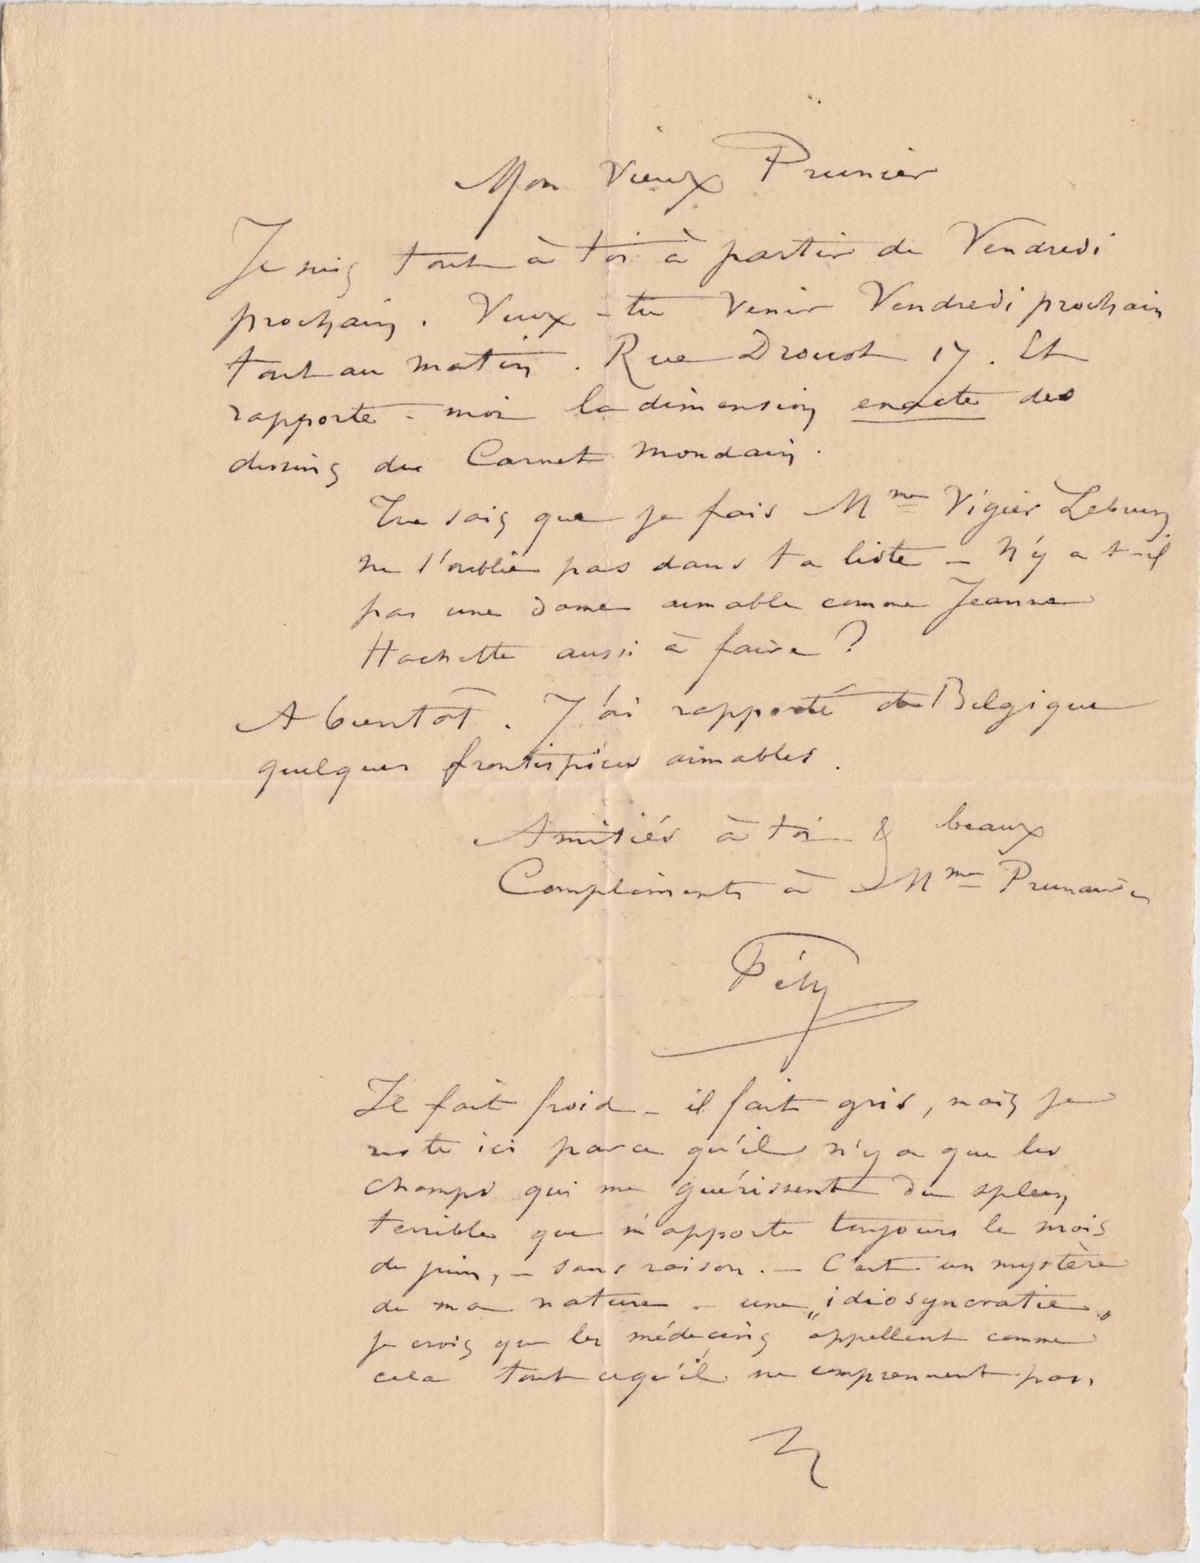 Mon Vieux Prunier
Je suis tout à toi à partir de Vendredi
prochain. Veux-tu Venir Vendredi prochain
tout au matin. Rue Drouot 17. Et
rapporte-moi la dimension exacte des
dessins du Carnet mondain.
Tu sais que je fais Mme Vigier Lebrun
ne l'oublie pas dans ta liste - N'y a t-il
pas une dame aimable comme Jeanne
Hachette aussi à faire ?
A bientôt. J'ai rapporté de Belgique
quelques frontispices aimables.
Amitiés à toi & beaux
Compliments à Mme Prunaire
Fély
Il fait froid - il fait gris, mais je
reste ici parce qu'il n'y a que les
champs qui me guérissent du spleen
terrible que m'apporte toujours le mois
de juin, - sans raison. - C'est un mystère
de ma nature - une „idiosyncratie„
je crois que les médecins appellent comme
cela tout ce qu'il ne comprennent pas.